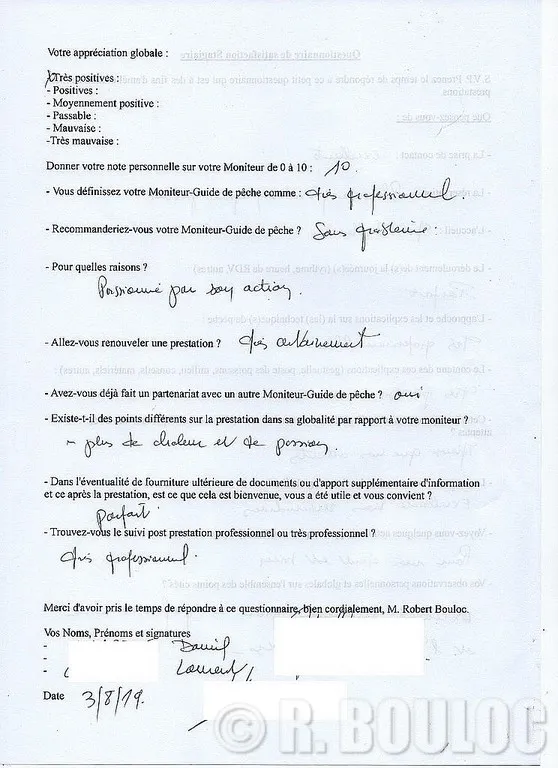 Votre appréciation globale :
Très positives :
- Positives :
- Moyennement positive :
- Passable :
- Mauvaise :
-Très mauvaise :
Donner votre note personnelle sur votre Moniteur de 0 à 10 : 10.
- Vous définissez votre Moniteur-Guide de pêche comme : très professionnel.
- Recommanderiez-vous votre Moniteur-Guide de pêche ? Sans problème.
- Pour quelles raisons ?
Passionné par son action.
- Allez-vous renouveler une prestation ? très certainement
- Avez-vous déjà fait un partenariat avec un autre Moniteur-Guide de pêche ? oui
- Existe-t-il des points différents sur la prestation dans sa globalité par rapport à votre moniteur ?
- plus de chaleur et de passion.
- Dans l'éventualité de fourniture ultérieure de documents ou d'apport supplémentaire d'information
et ce après la prestation, est ce que cela est bienvenue, vous a été utile et vous convient ?
parfait
- Trouvez-vous le suivi post prestation professionnel ou très professionnel ?
très professionnel.
Merci d'avoir pris le temps de répondre à ce questionnaire, bien cordialement, M. Robert Bouloc.
Vos Noms, Prénoms et signatures
- Daniel
- Laurent
Date 3/8/19.
© R. BOULOC